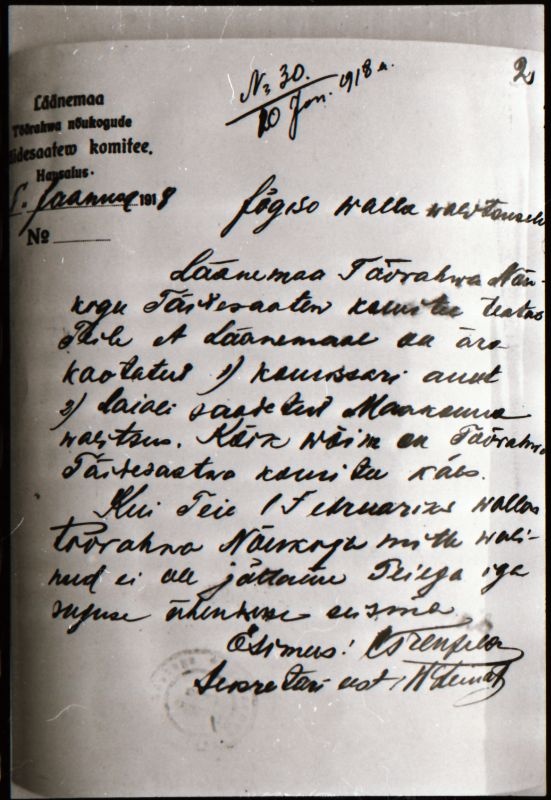 № 30.
20 Jan. 1918 a.
2
Läänemaa
Töörahwa nõukogude
äidesaatew komitee.
Hapsalus.
Jaanuar 1918
№
Jõgiso walla walitsusele
Läänemaa Töörahwa Nõu-
kogu Täidesaatew komitee teatas
Teile et Läänemaal on ära
kaotatud 1) komissari amet
2) laiali saadetud Maakonna
walitsus. Kõik wõim on Töörahwa
Täidesaatwa komitee käes.
Kui Teie 1 Februariks wallas
töörahwa Nõukogu mitte wali-
nud ei ole jättame Teiega iga
suguse ühenduse seisma
Esimees:
Sekretari eest: